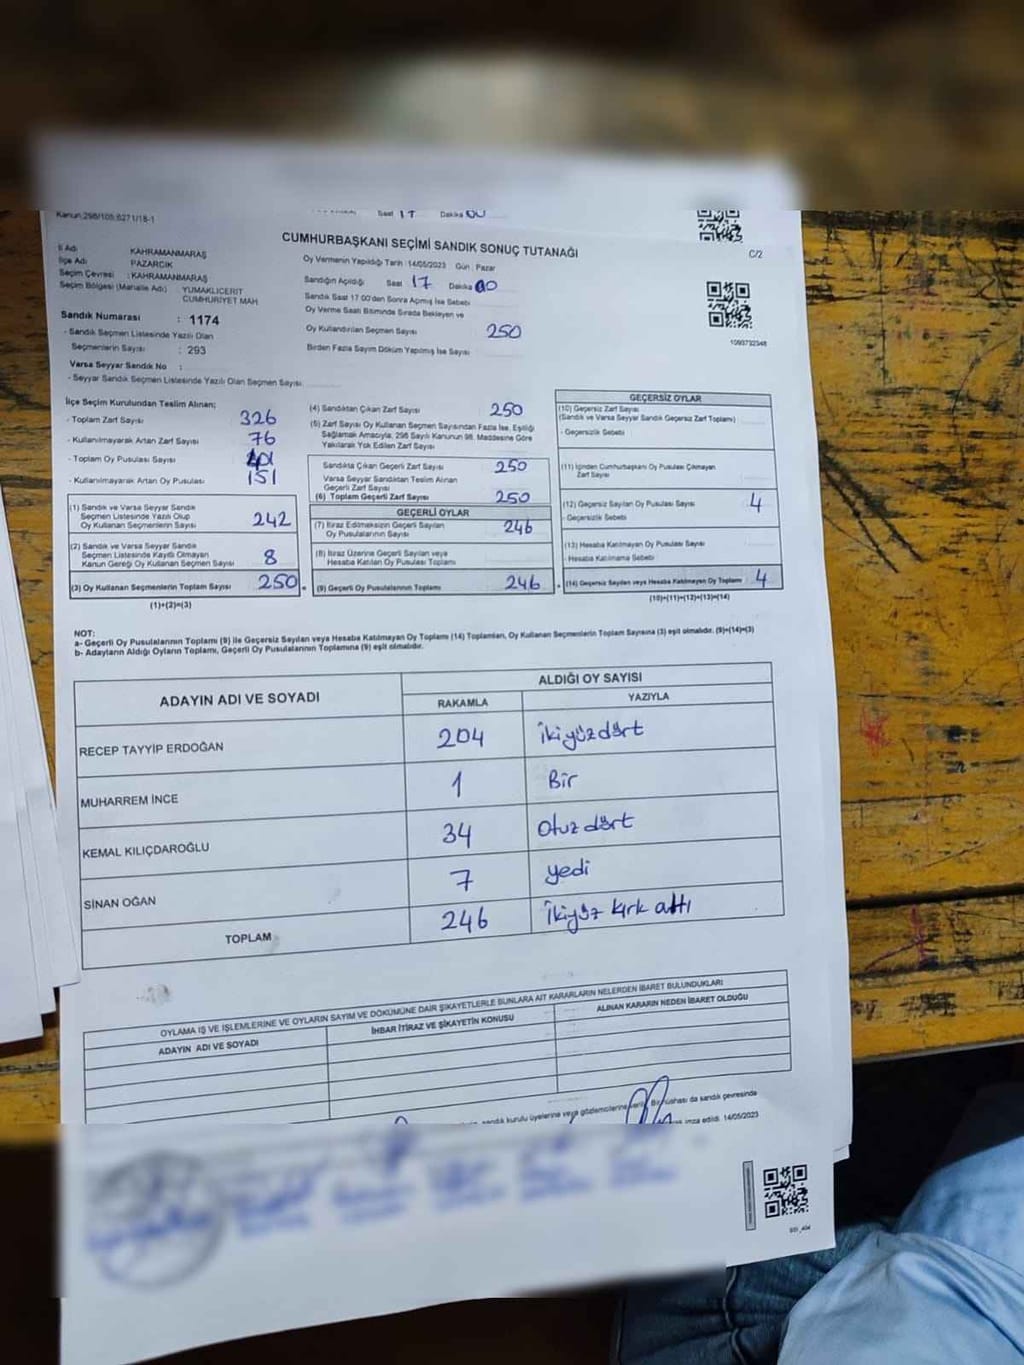 Kanun:298/105;6271/18-1
Saat 17 Dakika 00
CUMHURBAŞKANI SEÇİMİ SANDIK SONUÇ TUTANAĞI
C/2
İl Adı KAHRAMANMARAŞ
İlçe Adı PAZARCIK
Seçim Çevresi : KAHRAMANMARAŞ
Seçim Bölgesi (Mahalle Adı) YUMAKLICERİT
CUMHURİYET MAH
Sandık Numarası : 1174
- Sandık Seçmen Listesinde Yazılı Olan
Seçmenlerin Sayısı : 293
Varsa Seyyar Sandık No :
- Seyyar Sandık Seçmen Listesinde Yazılı Olan Seçmen Sayısı
Oy Vermenin Yapıldığı Tarih : 14/05/2023 Gün : Pazar
Sandığın Açıldığı Saat 17 Dakika 00
Sandık Saat 17 00'dan Sonra Açmış İse Sebebi
Oy Verme Saati Bitiminde Sırada Bekleyen ve
Oy Kullandırılan Seçmen Sayısı 250
Birden Fazla Sayım Döküm Yapılmış İse Sayısı
1093732348
İlçe Seçim Kurulundan Teslim Alınan;
- Toplam Zarf Sayısı 326
- Kullanılmayarak Artan Zarf Sayısı 76
- Toplam Oy Pusulası Sayısı
- Kullanılmayarak Artan Oy Pusulası 151
(1) Sandık ve Varsa Seyyar Sandık
Seçmen Listesinde Yazılı Olup
Oy Kullanan Seçmenlerin Sayısı 242
(2) Sandık ve Varsa Seyyar Sandık
Seçmen Listesinde Kayıtlı Olmayan
Kanun Gereği Oy Kullanan Seçmen Sayısı 8
(3) Oy Kullanan Seçmenlerin Toplam Sayısı 250
(1)+(2)=(3)
(4) Sandıktan Çıkan Zarf Sayısı 250
(5) Zarf Sayısı Oy Kullanan Seçmen Sayısından Fazla İse, Eşitliği
Sağlamak Amacıyla, 298 Sayılı Kanunun 98. Maddesine Göre
Yakılarak Yok Edilen Zarf Sayısı
Sandıkta Çıkan Geçerli Zarf Sayısı 250
Varsa Seyyar Sandıktan Teslim Alınan
Geçerli Zarf Sayısı
(6) Toplam Geçerli Zarf Sayısı 250
GEÇERLİ OYLAR
(7) İtiraz Edilmeksizin Geçerli Sayılan
Oy Pusulalarının Sayısı 246
(8) İtiraz Üzerine Geçerli Sayılan veya
Hesaba Katılan Oy Pusulası Toplamı
(9) Geçerli Oy Pusulalarının Toplamı 246
GEÇERSİZ OYLAR
(10) Geçersiz Zarf Sayısı
(Sandık ve Varsa Seyyar Sandık Geçersiz Zarf Toplamı)
- Geçersizlik Sebebi
(11) İçinden Cumhurbaşkanı Oy Pusulası Çıkmayan
Zarf Sayısı
(12) Geçersiz Sayılan Oy Pusulası Sayısı 4
- Geçersizlik Sebebi
(13) Hesaba Katılmayan Oy Pusulası Sayısı
- Hesaba Katılmama Sebebi
(14) Geçersiz Sayılan veya Hesaba Katılmayan Oy Toplamı 4
(10)+(11)+(12)+(13)=(14)
NOT:
a- Geçerli Oy Pusulalarının Toplamı (9) ile Geçersiz Sayılan veya Hesaba Katılmayan Oy Toplamı (14) Toplamları, Oy Kullanan Seçmenlerin Toplam Sayısına (3) eşit olmalıdır. (9)+(14)=(3)
b- Adayların Aldığı Oyların Toplamı, Geçerli Oy Pusulalarının Toplamına (9) eşit olmalıdır.
ADAYIN ADI VE SOYADI
ALDIĞI OY SAYISI
RAKAMLA YAZIYLA
RECEP TAYYİP ERDOĞAN 204 ikiyüzdört
MUHARREM İNCE 1 Bir
KEMAL KILIÇDAROĞLU 34 Otuz dört
SİNAN OĞAN 7 yedi
TOPLAM 246 İkiyüz kırk altı
OYLAMA İŞ VE İŞLEMLERİNE VE OYLARIN SAYIM VE DÖKÜMÜNE DAİR ŞİKAYETLERLE BUNLARA AİT KARARLARIN NELERDEN İBARET BULUNDUKLARI
ADAYIN ADI VE SOYADI İHBAR İTİRAZ VE ŞİKAYETİN KONUSU ALINAN KARARIN NEDEN İBARET OLDUĞU
sandık kurulu üyelerine veya gözlemcilerine verildi. Bir nüshası da sandık çevresinde
imza edildi. 14/05/2023